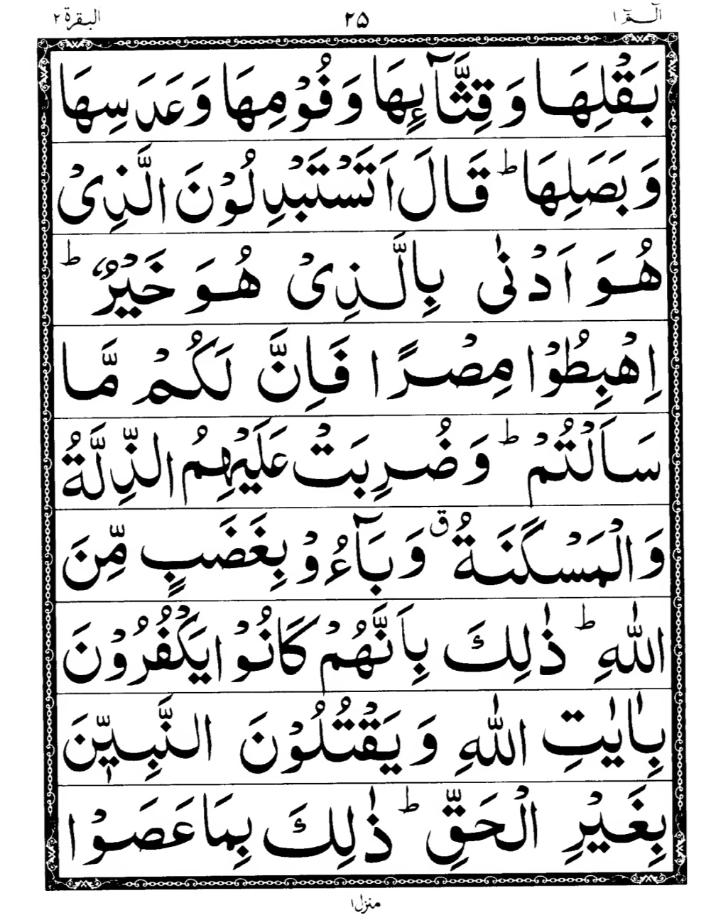 الٓمّٓ ١ ٢٥ البقرة ٢
بَقْلِهَا وَ قِثَّآئِهَا وَ فُوْمِهَا وَ عَدَسِهَا
وَ بَصَلِهَا ؕ قَالَ اَتَسْتَبْدِلُوْنَ الَّذِیْ
هُوَ اَدْنٰی بِالَّذِیْ هُوَ خَیْرٌ ؕ
اِهْبِطُوْا مِصْرًا فَاِنَّ لَكُمْ مَّا
سَاَلْتُمْ ؕ وَ ضُرِبَتْ عَلَیْهِمُ الذِّلَّةُ
وَ الْمَسْكَنَةُ ۗ وَ بَآءُوْ بِغَضَبٍ مِّنَ
اللّٰهِ ؕ ذٰلِكَ بِاَنَّهُمْ كَانُوْا یَكْفُرُوْنَ
بِاٰیٰتِ اللّٰهِ وَ یَقْتُلُوْنَ النَّبِیّٖنَ
بِغَیْرِ الْحَقِّ ؕ ذٰلِكَ بِمَا عَصَوْا
منزل ١